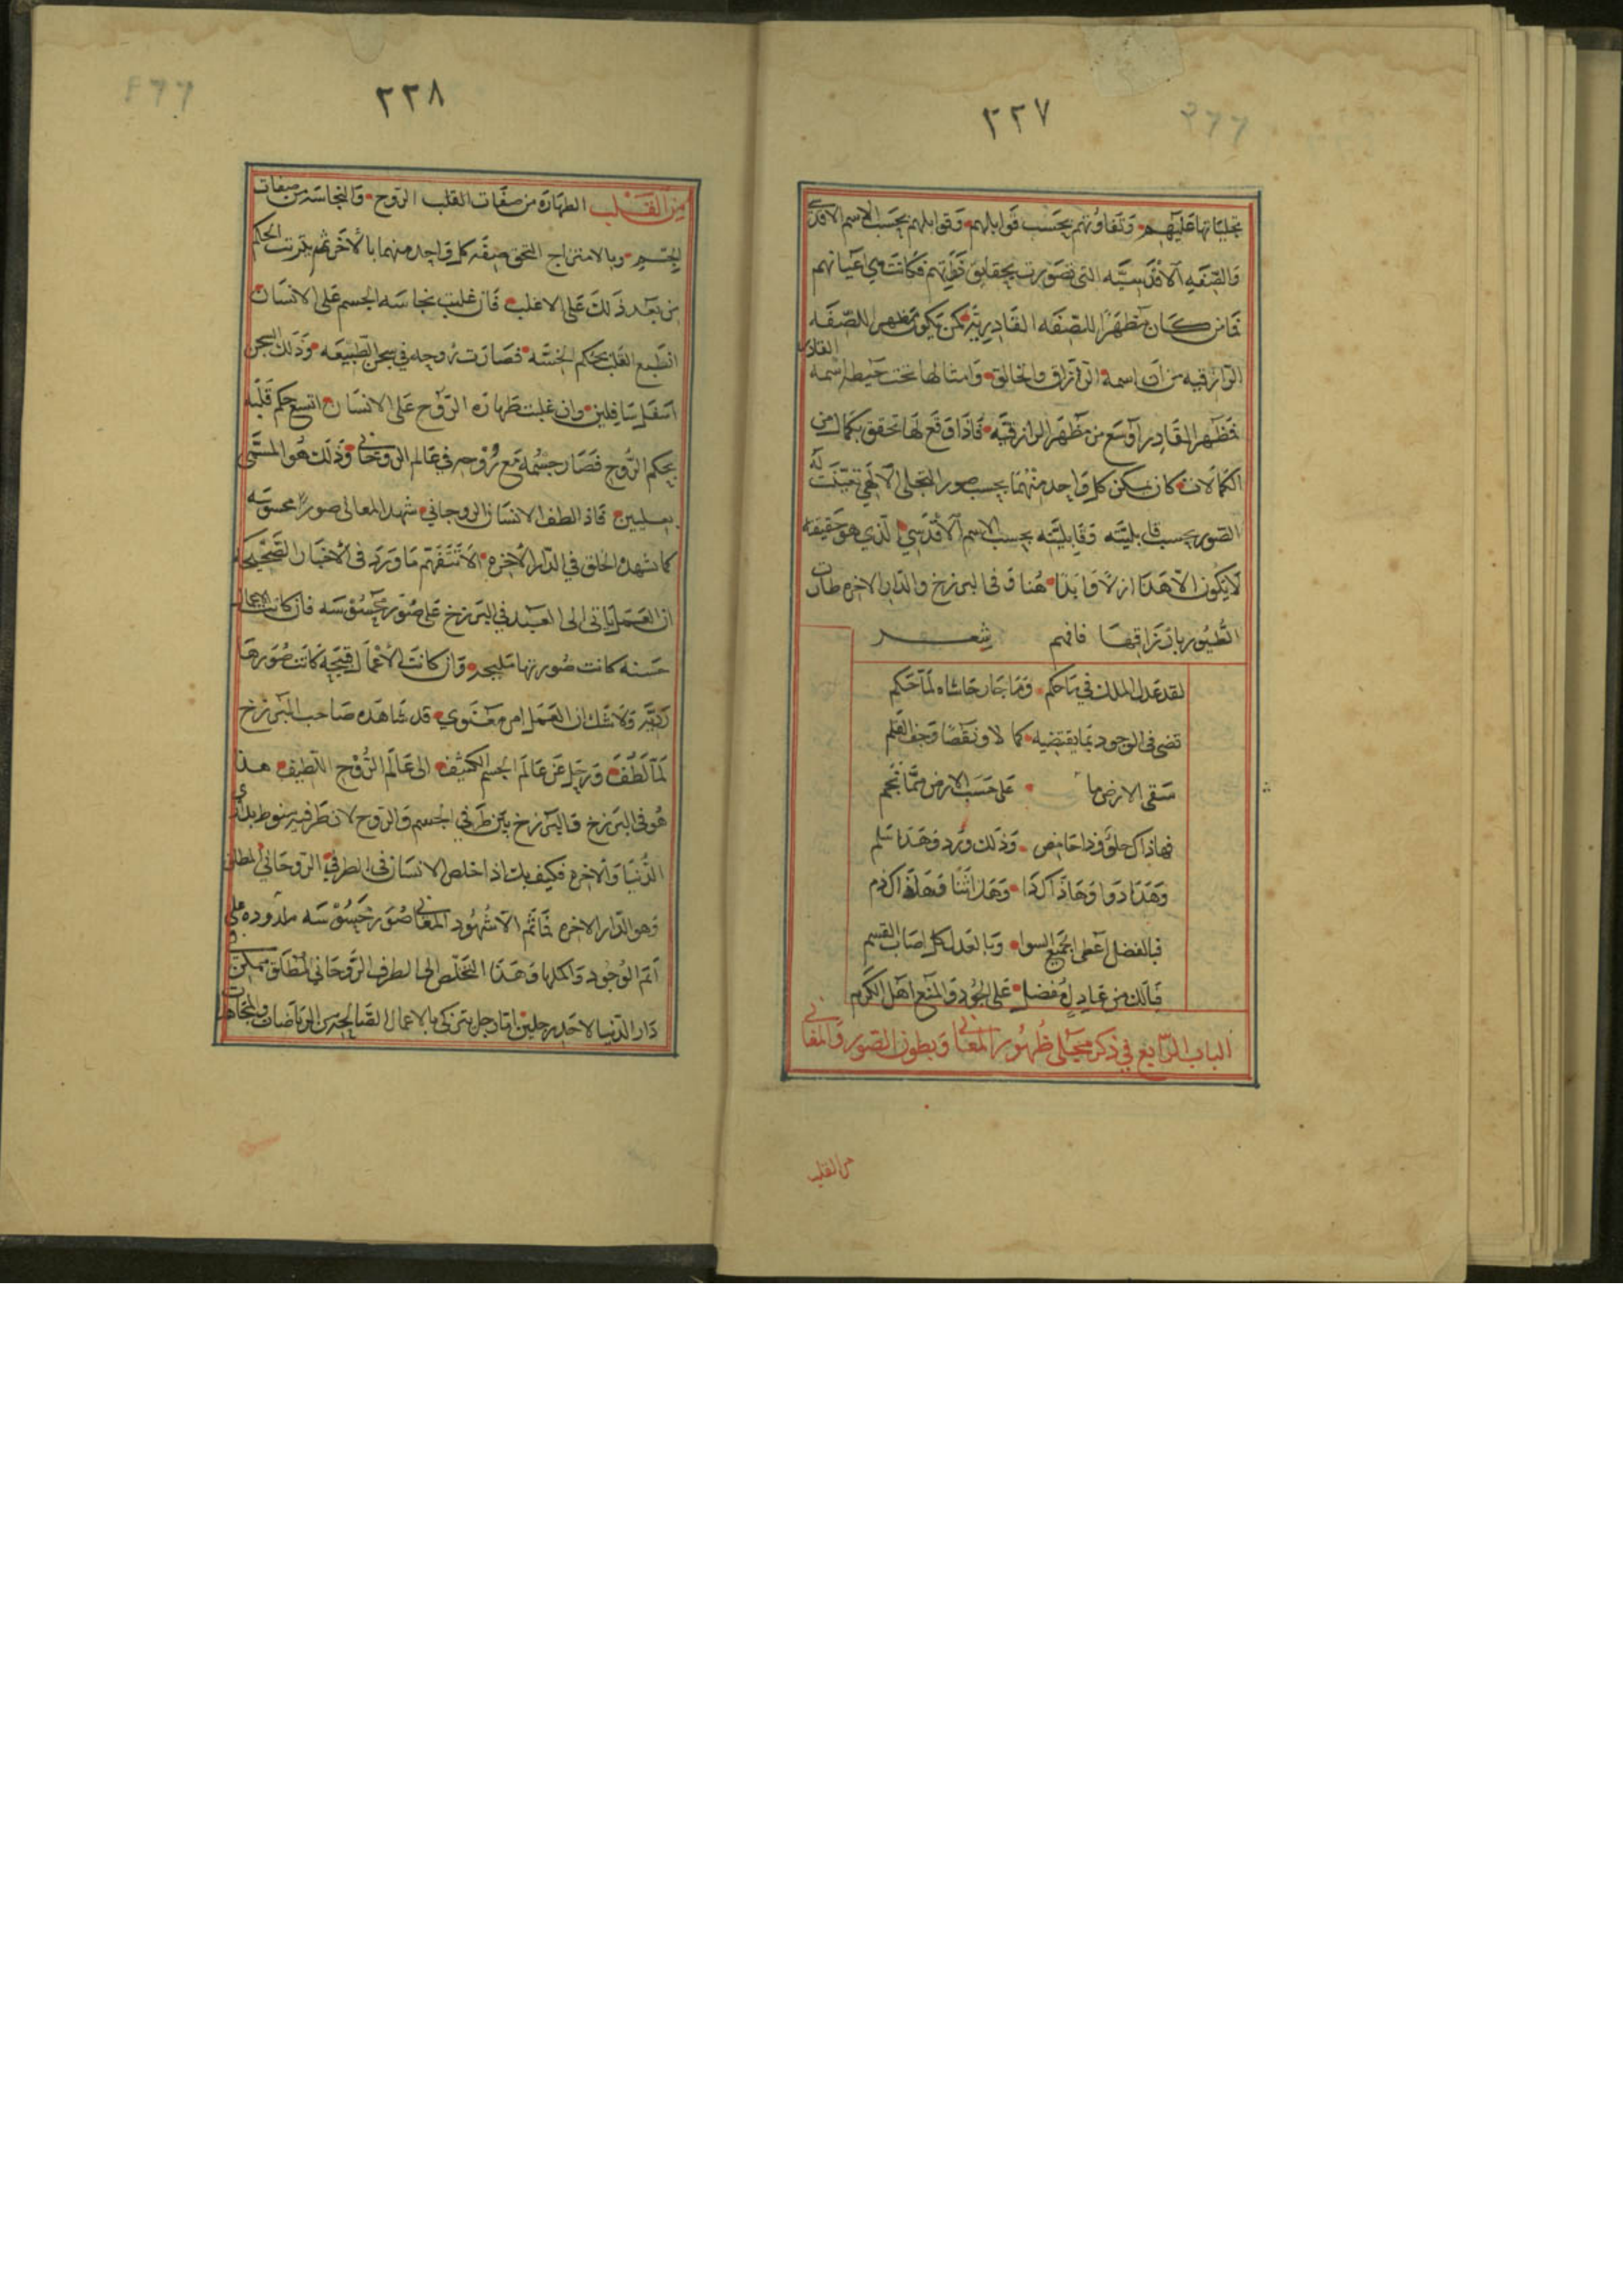 ٢٢٧
تجلياتها عليهم وتفاوتهم بحسب قوابلهم وقوابلهم بحسب الاسم الاقدسي
والصفه الاقدسيه التي تصورت بحقايق فكانت هي اعيانهم
فامن كان مظهرا للصفه القادريه كمن يكون مظهرا للصفه
الرازقيه من ان اسمه الرزاق والخالق وامثالها تحت حيطه اسمه القادر
فمظهر القادر اوسع من مظهر الرازقيه فاذا وقع لها تحقق بكمال من
الكمالات كان تمكن كل واحد منهما بحسب صور التجلى الالهي تعينت له
الصور بحسب قابليته وقابليته بحسب الاسم الاقدسي الذي هو حقيقته
لا يكون الا هذا ازلا وابدا هنا وفى البرزخ والدار الاخره طارت
الطيور بارزاقها فافهم شعر
لقد عدل الملك في ما حكم وما جار حاشاه لما حكم
قضى فى الوجود بما يقتضيه كمالا ونقصا وجف القلم
سقى الارض ما على حسب الارض مما نجم
فهاذاك حلو وذا حامض وذلك ورد وهذا سلم
وهذا دوا وهاذاك دا وهذا ثنا وهذاك ذم
فبالفضل اعطى الجميع السوا وبالعدل كل اصاب القسم
فيالك من عادل مفضل على الجود والمنع اهل الكرم
الباب الرابع في ذكر مجلى ظهور المعاني وبطون الصور والمغاني
من القلب
٢٢٨
من القلب الطهاره من صفات القلب الروح والنجاسه من صفات
الجسم وبالامتزاج التحق صفه كل واحد منهما بالاخر ثم يترتب الحكم
من بعد ذلك على الاغلب فان غلبت نجاسه الجسم على الانسان
انطبع القلب بحكم الخسه فصارت روحه في سجن الطبيعه وذلك السجن
اسفل سافلين وان غلبت طهاره الروح على الانسان اتسع حكم قلبه
بحكم الروح فصار جسمه مع روحه في عالم الروحاني وذلك هو المسمى
بعليين فاذ الطف الانسان الروحاني شهد المعانى صورا محسوسه
كما شهده الخلق في الدار الاخره الا تتفهم ما ورد فى الاخبار الصحيحه
ان العمل ياتى الى العبد في البرزخ على صور محسوسه فان كانت الاعمال
حسنه كانت صورتها مليحه وان كانت الاعمال قبيحه كانت صورها
رديه ولا شك ان العمل امر معنوي قد شاهده صاحب البرزخ
لما لطف ورحل عن عالم الجسم الكثيف الى عالم الروح اللطيف هذا
هو فى البرزخ والبرزخ بين طرفي الجسم والروح لان طرفيه منوط بداري
الدنيا والاخره فكيف بك اذ اخلص الانسان فى الطرفي الروحاني المطلق
وهو الدار الاخره فما ثم الا شهود المعاني صور محسوسه على
اتم الوجود واكملها وهذا التخلص الى الطرف الروحاني المطلق ممكن في
دار الدنيا لاحد رجلين اما رجل تزكى بالاعمال الصالحه من الرياضات والمجاهدات